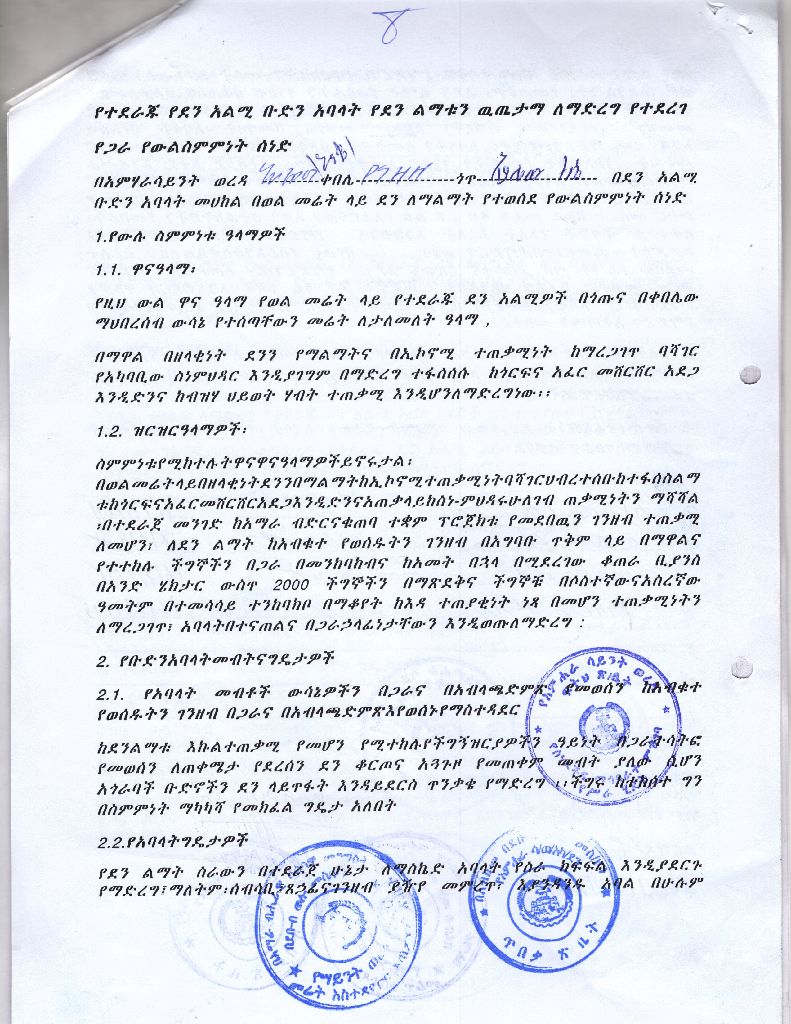 የተደራጁ የደን አልሚ ቡድን አባላት የደን ልማቱን ዉጤታማ ለማድረግ የተደረገ
የጋራ የውልስምምነት ሰነድ
በአምሃራሳይንት ወረዳ ቀበሌ ጎጥ በደን አልሚ
ቡድን አባላት መሀከል በወል መሬት ላይ ደን ለማልማት የተወሰደ የውልስምምነት ሰነድ
1.የውሉ ስምምነቱ ዓላማዎች
1.1. ዋናዓላማ፡
የዚህ ውል ዋና ዓላማ የወል መሬት ላይ የተደራጁ ደን አልሚዎች በጎጡና በቀበሌው
ማህበረሰብ ውሳኔ የተሰጣቸውን መሬት ለታለመለት ዓላማ ,
በማዋል በዘላቂነት ደንን የማልማትና በኢኮኖሚ ተጠቃሚነት ከማረጋገጥ ባሻገር
የአካባቢው ስነምህዳር እንዲያገግም በማድረግ ተፋሰሱ ከጎርፍና አፈር መሸርሸር አደጋ
እንዲድንና ከብዝሃ ህይወት ሃብት ተጠቃሚ እንዲሆንለማድረግነው፡፡
1.2. ዝርዝርዓላማዎች፡
ስምምነቱየሚከተሉትዋናዋናዓላማዎችይኖሩታል፡
በወልመሬትላይበዘላቂነትደንንበማልማትከኢኮኖሚተጠቃሚነትባሻገርህብረተሰቡከተፋሰስልማ
ቱከጎርፍናአፈርመሸርሸርአደጋእንዲድንናአጠቃላይከስነ-ምህዳሩሁለገብ ጠቃሚነትን ማሻሻል
፡በተደራጀ መንገድ ከአማራ ብድርናቁጠባ ተቋም ፕሮጀክቱ የመደበዉን ገንዘብ ተጠቃሚ
ለመሆን፣ ለደን ልማት ከአብቁተ የወሰዱትን ገንዘብ በአግባቡ ጥቅም ላይ በማዋልና
የተተከሉ ችግኞችን በጋራ በመንከባከብና ከአመት በኋላ በሚደረገው ቆጠራ ቢያንስ
በአንድ ሄክታር ውስጥ 2000 ችግኞችን በማጽደቅና ችግኞቹ በሶስተኛውናአስረኛው
ዓመትም በተመሳሳይ ተንከባክቦ በማቆየት ከእዳ ተጠያቂነት ነጻ በመሆን ተጠቃሚነትን
ለማረጋገጥ፣ አባላትበተናጠልና በጋራኃላፊነታቸውን እንዲወጡለማድረግ :
2. የቡድንአባላትመብትናግዴታዎች
2.1. የአባላት መብቶች ውሳኔዎችን በጋራና በአብላጫድምጽ የመወሰን ከአብቁተ
የወሰዱትን ገንዘብ በጋራና በአብላጫድምጽእየወሰኑየማስተዳደር
ከደንልማቱ እኩልተጠቃሚ የመሆን የሚተከሉየችግኝዝርያዎችን ዓይነት በጋራተሳትፎ
የመወሰን ለጠቀሜታ የደረሰን ደን ቆርጦና አጓጉዞ የመጠቀም መብት ያለው ሲሆን
አጎራባች ቡድኖችን ደን ላይጥፋት እንዳይደርስ ጥንቃቄ የማድረግ ፡፡ችግሩ ከተከሰተ ግን
በስምምነት ማካካሻ የመክፈል ግዴታ አለበት
2.2.የአባላትግዴታዎች
የደን ልማት ስራውን በተደራጀ ሁኔታ ለማስኬድ አባላት የስራ ክፍፍል እንዲያደርጉ
የማድረግ፣ማለትም፡ሰብሳቢ፣ጸኃፊናገንዘብ ያዥየ መምረጥ፣ እያንዳንዱ አባል በሁሉም